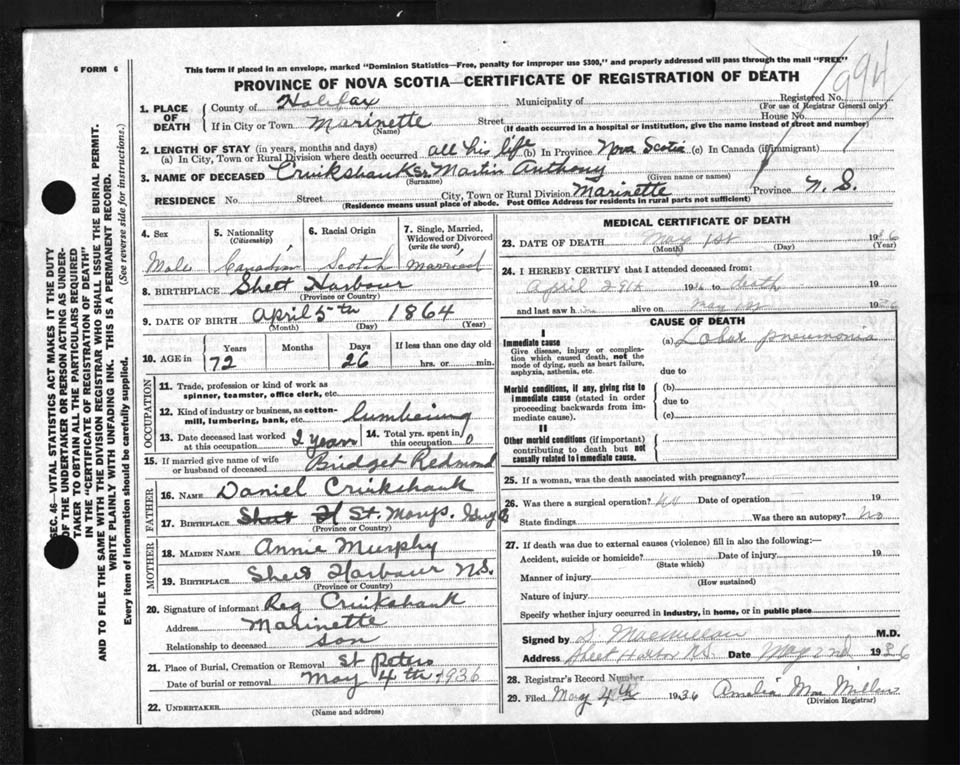 FORM 6
This form if placed in an envelope, marked "Dominion Statistics—Free, penalty for improper use $300," and properly addressed will pass through the mail "FREE"
PROVINCE OF NOVA SCOTIA—CERTIFICATE OF REGISTRATION OF DEATH
994
1. PLACE OF DEATH County of Halifax Municipality of Registered No.
(For use of Registrar General only)
If in City or Town Marinette Street House No.
(Name) (If death occurred in a hospital or institution, give the name instead of street and number)
2. LENGTH OF STAY (in years, months and days)
(a) In City, Town or Rural Division where death occurred all his life (b) In Province Nova Scotia (c) In Canada (if immigrant)
3. NAME OF DECEASED Cruikshank Sr. Martin Anthony
(Surname) (Given name or names)
RESIDENCE No. Street City, Town or Rural Division Marinette Province N. S.
(Residence means usual place of abode. Post Office Address for residents in rural parts not sufficient)
SEC. 46—VITAL STATISTICS ACT MAKES IT THE DUTY
OF THE UNDERTAKER OR PERSON ACTING AS UNDER-
TAKER TO OBTAIN ALL THE PARTICULARS REQUIRED
IN THE "CERTIFICATE OF REGISTRATION OF DEATH"
AND TO FILE THE SAME WITH THE DIVISION REGISTRAR WHO SHALL ISSUE THE BURIAL PERMIT.
WRITE PLAINLY WITH UNFADING INK. THIS IS A PERMANENT RECORD.
Every item of Information should be carefully supplied. (See reverse side for instructions.)
4. Sex
Male
5. Nationality
(Citizenship)
Canadian
6. Racial Origin
Scotch
7. Single, Married,
Widowed or Divorced
(write the word)
married
8. BIRTHPLACE Sheet Harbour
(Province or Country)
9. DATE OF BIRTH April 5th 1864
(Month) (Day) (Year)
10. AGE in Years Months Days If less than one day old
72 26 hrs. or min.
OCCUPATION
11. Trade, profession or kind of work as
spinner, teamster, office clerk, etc.
12. Kind of industry or business, as cotton-
mill, lumbering, bank, etc. lumbering
13. Date deceased last worked
at this occupation 2 years
14. Total yrs. spent in
this occupation
15. If married give name of wife
or husband of deceased Bridget Redmond
FATHER
16. NAME Daniel Cruikshank
17. BIRTHPLACE Sheet H St. Marys.
(Province or Country)
MOTHER
18. MAIDEN NAME Annie Murphy
19. BIRTHPLACE Sheet Harbour N.S.
(Province or Country)
20. Signature of informant Reg Cruikshank
Address Marinette
Relationship to deceased son
21. Place of Burial, Cremation or Removal St Peters
Date of burial or removal May 4th 1936
22. UNDERTAKER
(Name and address)
MEDICAL CERTIFICATE OF DEATH
23. DATE OF DEATH May 1st 1936
(Month) (Day) (Year)
24. I HEREBY CERTIFY that I attended deceased from:
April 29th 1936 to death 19
and last saw him alive on May 1st 1936
CAUSE OF DEATH
I
Immediate cause
Give disease, injury or complica-
tion which caused death, not the
mode of dying, such as heart failure,
asphyxia, asthenia, etc.
(a) Lobar pneumonia
due to
Morbid conditions, if any, giving rise to
immediate cause (stated in order
proceeding backwards from im-
mediate cause).
(b)
due to
(c)
II
Other morbid conditions (if important)
contributing to death but not
causally related to immediate cause.
25. If a woman, was the death associated with pregnancy?
26. Was there a surgical operation? no Date of operation 19
State findings Was there an autopsy? no
27. If death was due to external causes (violence) fill in also the following:—
Accident, suicide or homicide? Date of injury 19
(State which)
Manner of injury
(How sustained)
Nature of injury
Specify whether injury occurred in industry, in home, or in public place
Signed by MacMillan M.D.
Address Sheet Harbor N.S. Date May 2nd 1936
28. Registrar's Record Number
29. Filed May 4th 1936 Amelia MacMillan
(Division Registrar)